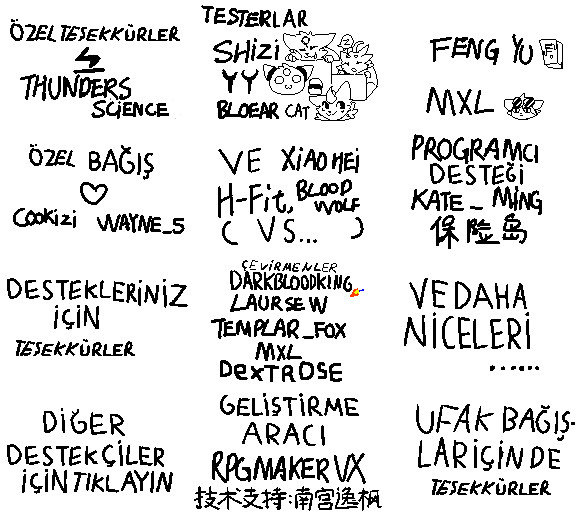 ÖZEL TEŞEKKÜRLER
THUNDERS
SCIENCE
TESTERLAR
SHIZI
YY
BLOEAR CAT
FENG YU
MXL
ÖZEL BAĞIŞ
COOKIZI WAYNE_S
VE XIAO HEI
H-Fit, BLOOD WOLF
( VS... )
PROGRAMCI
DESTEĞİ
KATE_MING
保险岛
DESTEKLERİNİZ
İÇİN
TEŞEKKÜRLER
ÇEVİRMENLER
DARKBLOODKING
LAURSEW
TEMPLAR_FOX
MXL
DEXTROSE
VE DAHA
NİCELERİ
......
DİĞER
DESTEKÇİLER
İÇİN TIKLAYIN
GELİŞTİRME
ARACI
RPGMAKER VX
技术支持:南宫逸枫
UFAK BAĞIŞ-
LAR İÇİN DE
TEŞEKKÜRLER